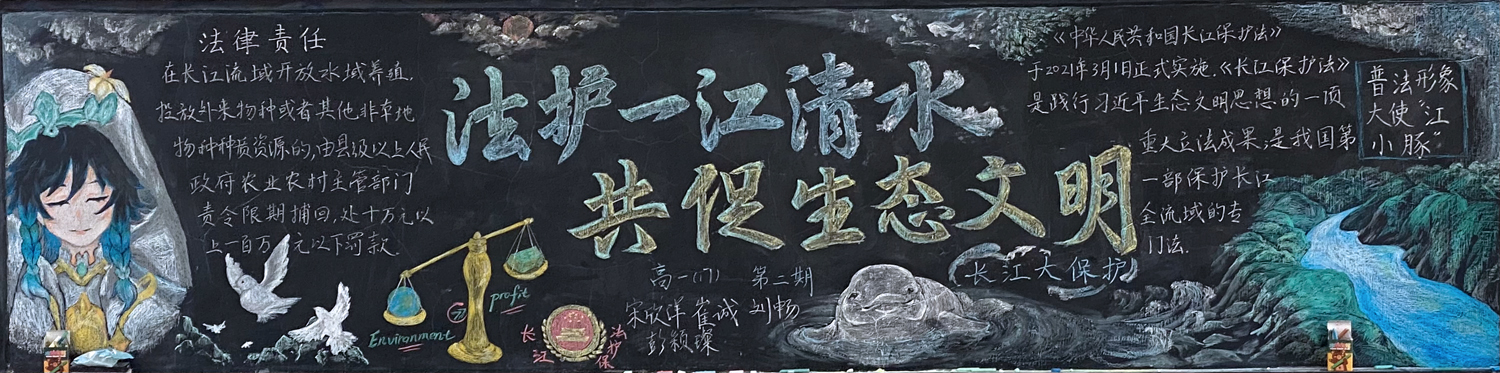 法律责任
在长江流域开放水域养殖、
投放外来物种或者其他非本地
物种种质资源的,由县级以上人民
政府农业农村主管部门
责令限期捕回,处十万元以
上一百万元以下罚款.
法护一江清水
共促生态文明
Environment
profit
长江
保护法
高一(17) 第二期
宋欣洋 崔诚 刘畅
彭颖璨
长江大保护
《中华人民共和国长江保护法》
于2021年3月1日正式实施.《长江保护法》
是践行习近平生态文明思想的一项
重大立法成果,是我国第
一部保护长江
全流域的专
门法.
普法形象
大使“江
小豚”